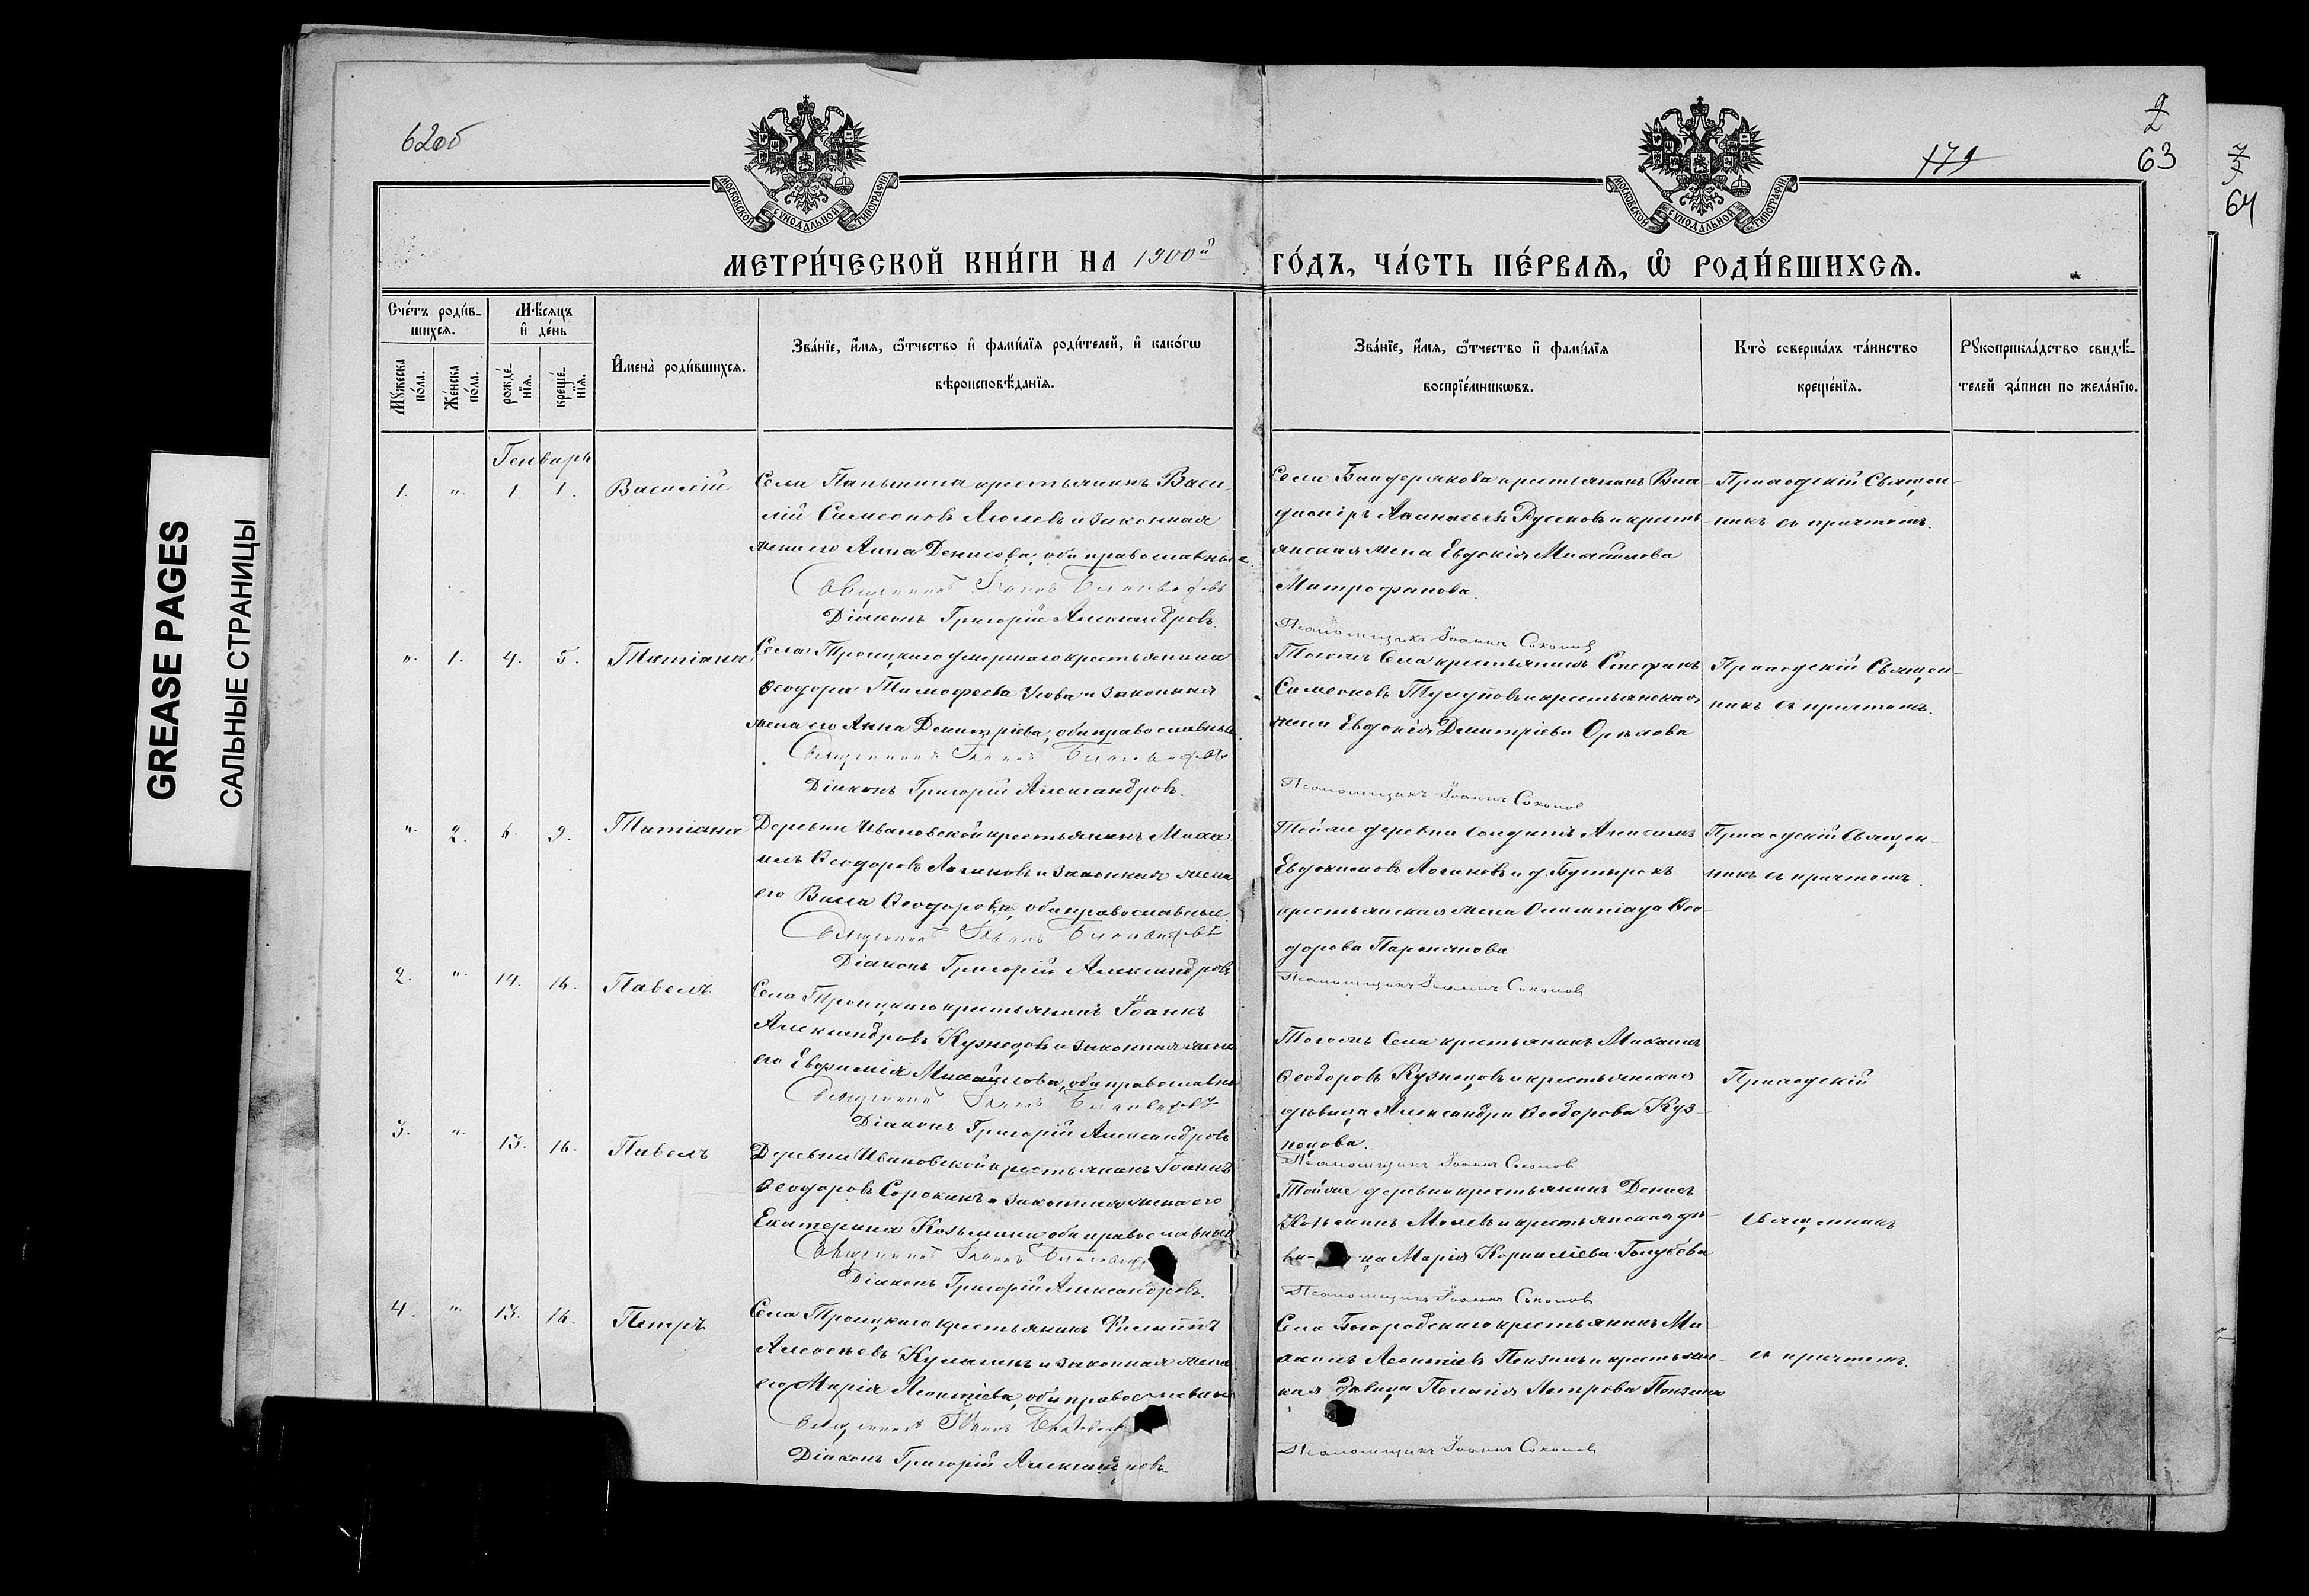 GREASE PAGES
САЛЬНЫЕ СТРАНИЦЫ
62об
179
2
63
64
МОСКОВСКОЙ СѴНОДАЛЬНОЙ ТИПОГРАФІИ
МОСКОВСКОЙ СѴНОДАЛЬНОЙ ТИПОГРАФІИ
МЕТРИ́ЧЕСКОЙ КНИ́ГИ НА 1900й ГО́ДЪ, ЧА́СТЬ ПЕ́РВАѦ, Ѡ҆ РОДИ́ВШИХСѦ.
Сче́тъ роди́в-
шихсѧ.
Мꙋ́жеска
по́ла.
Же́нска
по́ла.
Мѣ́сяцъ
и҆ де́нь
рожде́-
нїѧ.
креще́-
нїѧ.
И҆мена̀ роди́вшихсѧ.
Зва́нїе, и҆́мѧ, ѻ҆́тчество и҆ фами́лїѧ роди́телей, и҆ како́гѡ
вѣроисповѣ́данїѧ.
Зва́нїе, и҆́мѧ, ѻ҆́тчество и҆ фами́лїѧ
воспрїе́мникѡвъ.
Кто̀ соверша́лъ та́инство
креще́нїѧ.
Рꙋкоприкла́дство свидѣ́-
телей за́писи по жела́нїю.
Генварь
1. " 1. 1. Василій
Села Паньшина крестьянинъ Васи-
лій Симеоновъ и законная
жена его Анна Денисова, оба православные
Священникъ
Діаконъ Григорій Александровъ.
Села крестьянинъ Вла-
диміръ и кресть-
янская жена Евдокія Михайлова
Митрофанова.
Псаломщикъ Іоаннъ Соколов
Приходскій Священ-
никъ съ причтомъ.
" 1. 4. 5. Татіана
Села Троицкаго умершаго крестьянина
Ѳеодора Тимофеева Усова и законная
жена его Анна Димитріева, оба православные.
Священникъ
Діаконъ Григорій Александровъ.
Тогожъ Села крестьянинъ Стефанъ
Симеоновъ и крестьянская
жена Евдокія Димитріева Орлова
Псаломщикъ Іоаннъ Соколов
Приходскій Священ-
никъ съ причтомъ.
" 2. 6. 9. Татіана
Деревни Ивановской крестьянинъ Миха-
илъ Ѳеодоровъ Логиновъ и законная жена
его Васса Ѳеодорова, оба православные
Священникъ
Діаконъ Григорій Александровъ
Тойже деревни солдатъ
Евдокимовъ Логиновъ и д.
крестьянская жена Олимпіада Ѳео-
дорова
Псаломщикъ Іоаннъ Соколов
Приходскій Священ-
никъ съ причтомъ.
2. " 14. 16. Павелъ
Села Троицкаго крестьянинъ Іоаннъ
Александровъ Кузнецовъ и законная жена
его Евфимія Михайлова, оба православные
Священникъ
Діаконъ Григорій Александровъ
Тогожъ Села крестьянинъ Михаилъ
Ѳеодоровъ Кузнецовъ и крестьянская
дѣвица Александра Ѳеодорова Куз-
нецова.
Псаломщикъ Іоаннъ Соколов
Приходскій
3. " 15. 16. Павелъ
Деревни Ивановской крестьянинъ Іоаннъ
Ѳеодоровъ Сорокинъ и законная жена его
Екатерина Козьмина оба православные
Священникъ
Діаконъ Григорій Александровъ.
Тойже деревни крестьянинъ Денисъ
Козьминъ и крестьянская дѣ-
ви-ца Марія Корниліева Голубева
Псаломщикъ Іоаннъ Соколов
Священникъ
4. " 15. 16. Петръ
Села Троицкаго крестьянинъ Филиппъ
Алексѣевъ и законная жена
его Марія Леонтіева, оба православные
Священникъ
Діаконъ Григорій Александровъ.
Села Богородскаго крестьянинъ Ми-
хаилъ Леонтіевъ и крестьянс-
кая дѣвица Пелагія Петрова
Псаломщикъ Іоаннъ Соколов
съ причтомъ.